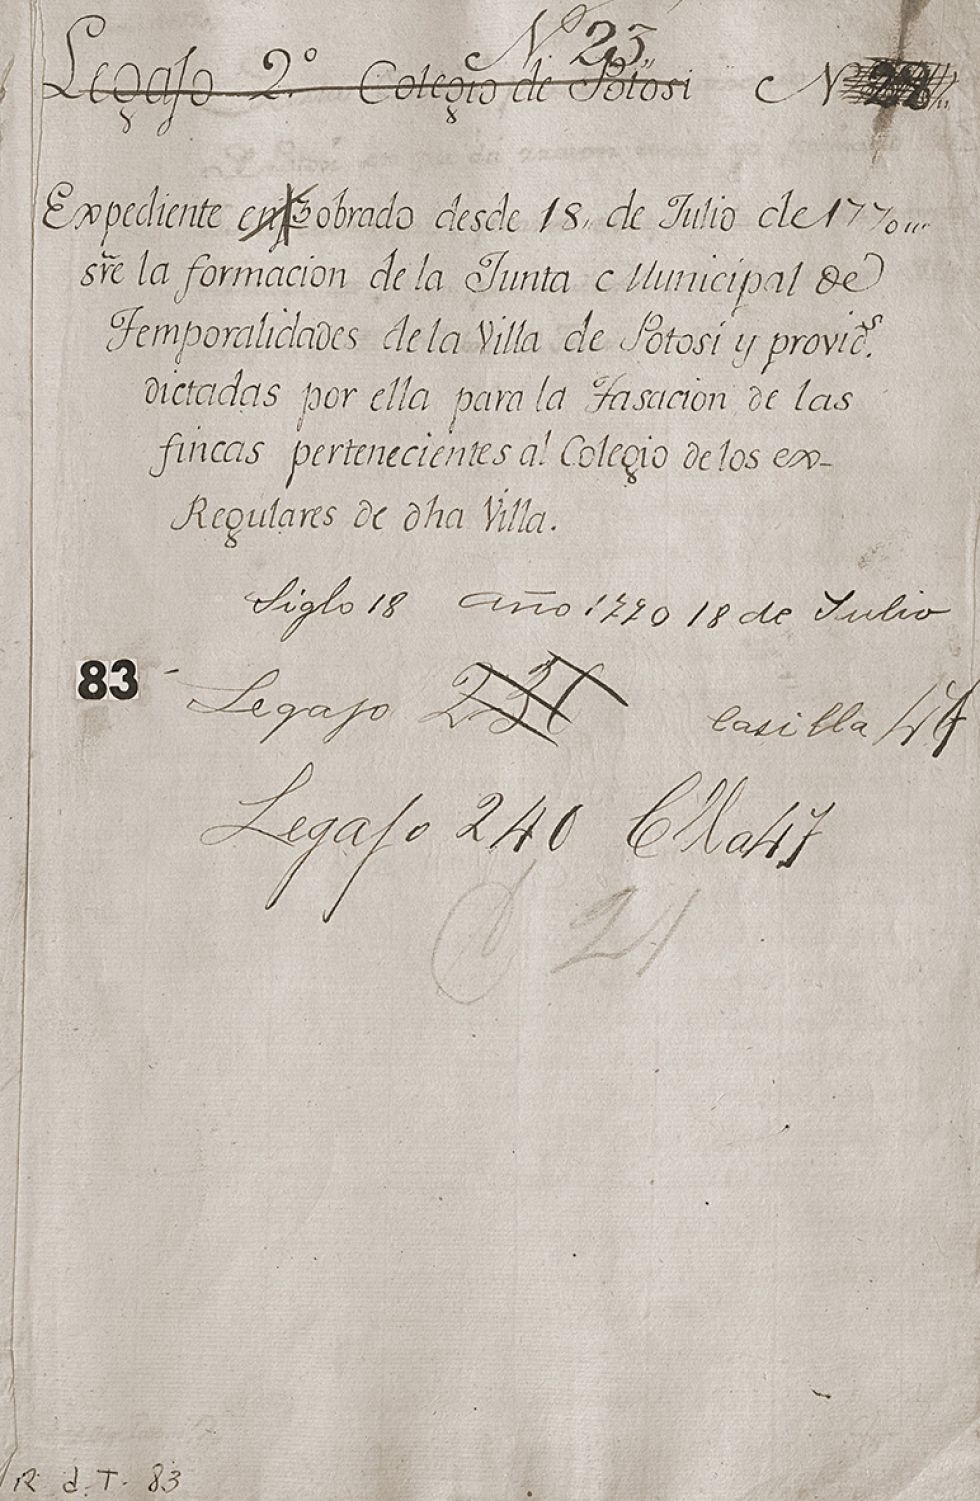 N. 23,,
Legajo 2.º Colegio de Potosi N
Expediente en obrado desde 18,, de Julio de 1770,,,,
sr̃e la formacion de la Junta Municipal de
Temporalidades de la Villa de Potosi y provid.s
dictadas por ella para la Tasacion de las
fincas pertenecientes al Colegio de los ex-
Regulares de dha Villa.
Siglo 18 año 1770 18 de Julio
83
Legajo 236 Casilla 47
Legajo 240 Clla 47
21
R d. T. 83